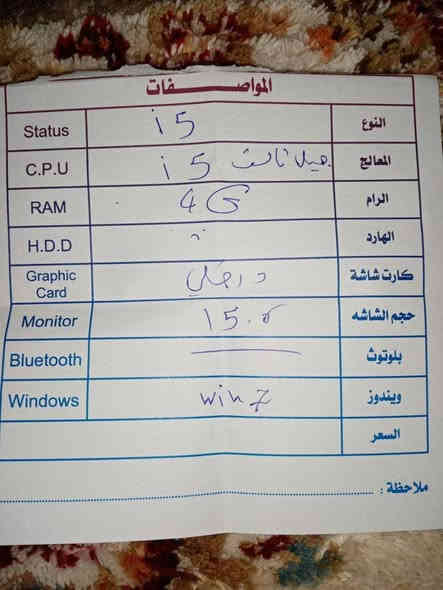 المواصفات
Status i5 النوع
C.P.U i5 جيل ثالث المعالج
RAM 4G الرام
H.D.D الهارد
Graphic Card كارت شاشة
Monitor 15.6 حجم الشاشه
Bluetooth بلوتوث
Windows win 7 ويندوز
السعر
ملاحظة :